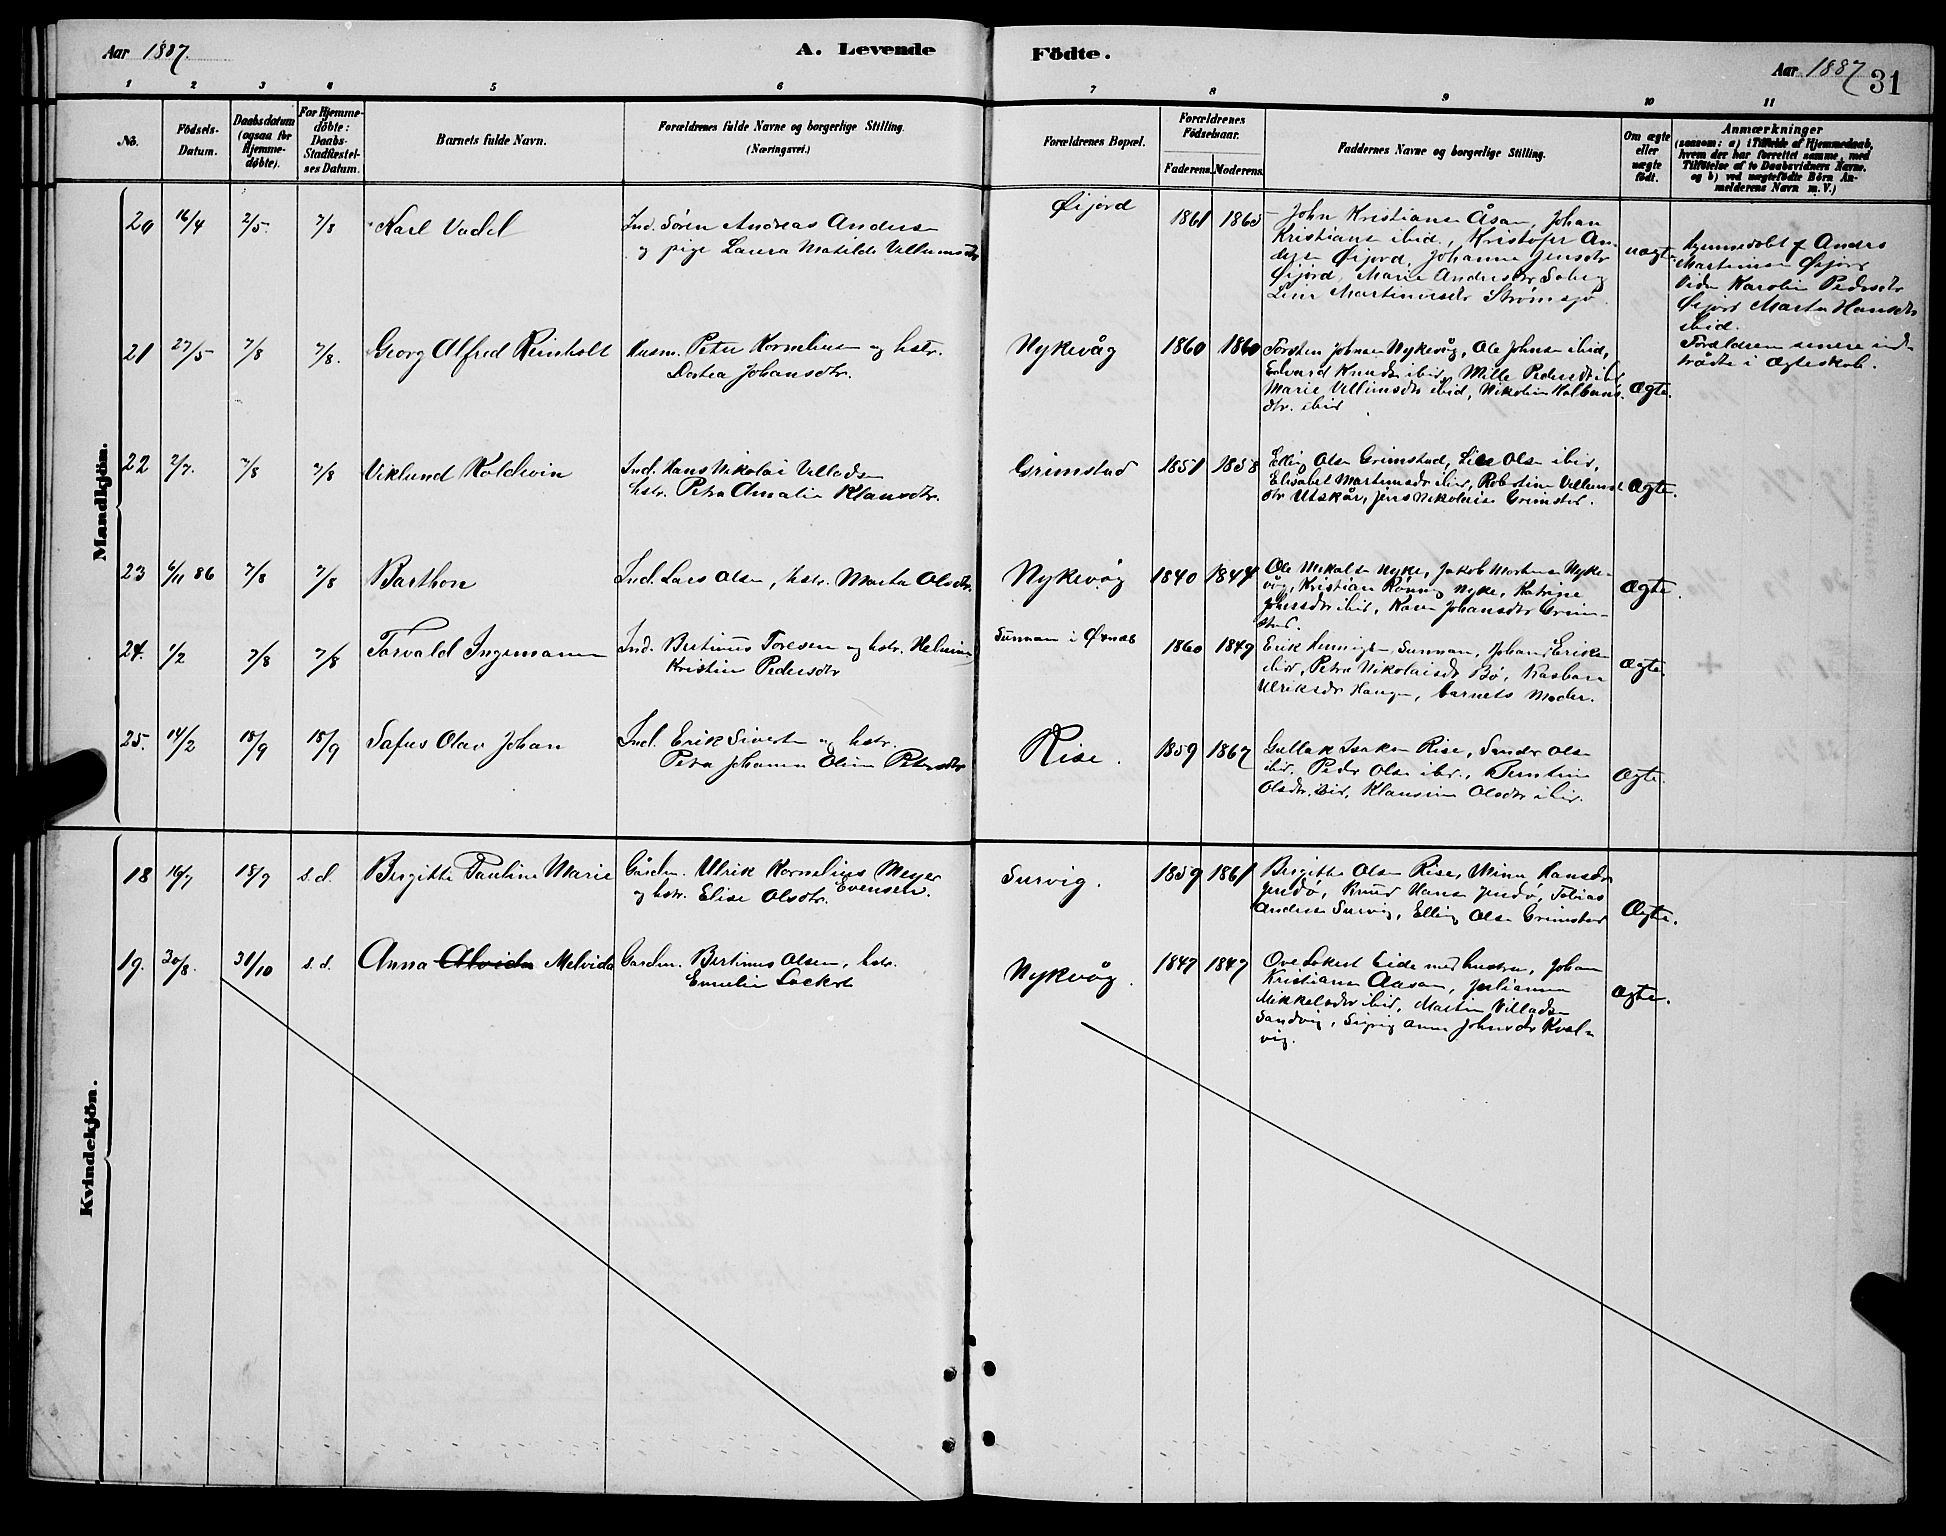 Aar 1887.
A. Levende Födte.
Aar 1887
31
1 2 3 4 5 6 7 8 9 10 11
No.
Födsels-
Datum.
Daabsdatum
(ogsaa for
Hjemme-
döbte).
For Hjemme-
döbte:
Daabs-
Stadfæstel-
ses Datum.
Barnets fulde Navn.
Forældrenes fulde Navne og borgerlige Stilling.
(Næringsvei.)
Forældrenes Bopæl.
Forældrenes
Födselsaar.
Faderens. Moderens.
Faddernes Navne og borgerlige Stilling.
Om ægte
eller
uægte
födt.
Anmærkninger
(saasom: a) i Tilfælde af Hjemmedaab,
hvem der har forrettet samme, med
Tilföielse af to Daabsvidners Navne,
og b) ved uægtefödte Börn An-
melderens Navn m. V.)
Mandkjön.
20 16/4 2/5 7/8 Karl Vadel
Ind. Sören Andreas Andersen
og pige Laura Matilde Villumsdtr
Øijord
1861 1865
John Kristiansen Åsan, Johan
Kristiansen ibid., Kristofer An-
dersen Øijord, Johanna Jensdtr
Øijord, Marie Andersdtr
Martinusdtr Strømsjø
uægte
hjemmedøbt af Anders
Martinusen Øijord
Karolin Pedersdtr
Øijord Marta Hansdtr
ibid.
Forældrene senere ind-
trådte i Ægteskab.
21 27/5 7/8 7/8. Georg Alfred Reinholt
Husm. Peter Korneliusen og hstr.
Dortea Johansdtr.
Nykevåg
1860 1860
Torsten Johnsen Nykevåg, Ole Johnsen ibid,
Edvard Knudsen ibid, Mille Pedersdtr ibid
Marie Villumsdtr ibid, Nikoline
dtr. ibid
Ægte.
22 2/7. 7/8 7/8 Viklund Koldevin
Ind. Hans Nikolai Villadsen
hstr. Petra Amalie Klausdtr.
Grimstad
1851 1858
Elling Olsen Grimstad, Olsen ibid,
Elisabet Martinusdtr ibid, Robertine Villums-
dtr Utskår, Jens Nikolaisen Grimstad.
Ægte.
23 6/11 86 7/8 7/8 Barthon
Ind. Lars Olsen, hstr. Marta Olsdtr.
Nykevåg
1840 1844
Ole Mikalsen Nyke, Jakob Mortensen Nyke-
våg, Kristian Rönnig Nyke, Katrine
Johnsdtr ibid, Karen Johansdtr Grim-
stad.
Ægte.
24. 1/2 7/8 7/8 Torvald Ingemann
Ind. Bertinus Toresen og hstr. Helmine
Kristine Pedersdtr
Sunnan i Øxnes
1860 1849
Erik Henningsen Sunnan, Johan Eriksen
ibid, Petra Nikolaisdtr Bø,
Ulriksdtr Haugen, barnets Moder.
Ægte.
25. 14/2 18/9 18/9 Safus Olav Johan
Ind. Erik Sivertsen og hstr.
Petra Johanna Oline Petersdtr
Rise.
1859 1867
Gullak Isaksen Rise, Sander Olsen
ibid, Peder Olsen ibid.,
Olsdtr. ibid, Klausine Olsdtr ibid.
Ægte.
Kvindekjön.
18 16/7 18/9 s.d. Birgitte Pauline Marie
Gårdm. Ulrik Kornelius Meyer
Evensen.
og hstr. Elise Olsdtr.
Survig.
1859 1861
Birgitte Olsen Rise, Mina Hansdtr
Jendö, Knud Hansen Jendö, Tobias
Andersen Survig, Elling Olsen Grimstad
Ægte.
19. 30/8. 31/10 s.d. Anna Alvida Melvida
Gårdm. Bertinus Olsen, hstr.
Emelie Lockert
Nykvåg.
1847 1847
Ove Lokert Eide med hustru, Johan
Kristiansen Aasan, Julianna
Mikkelsdtr ibid, Martin Villadsen
Sandvig, Anna Johnsdtr Kval-
vig.
Ægte.